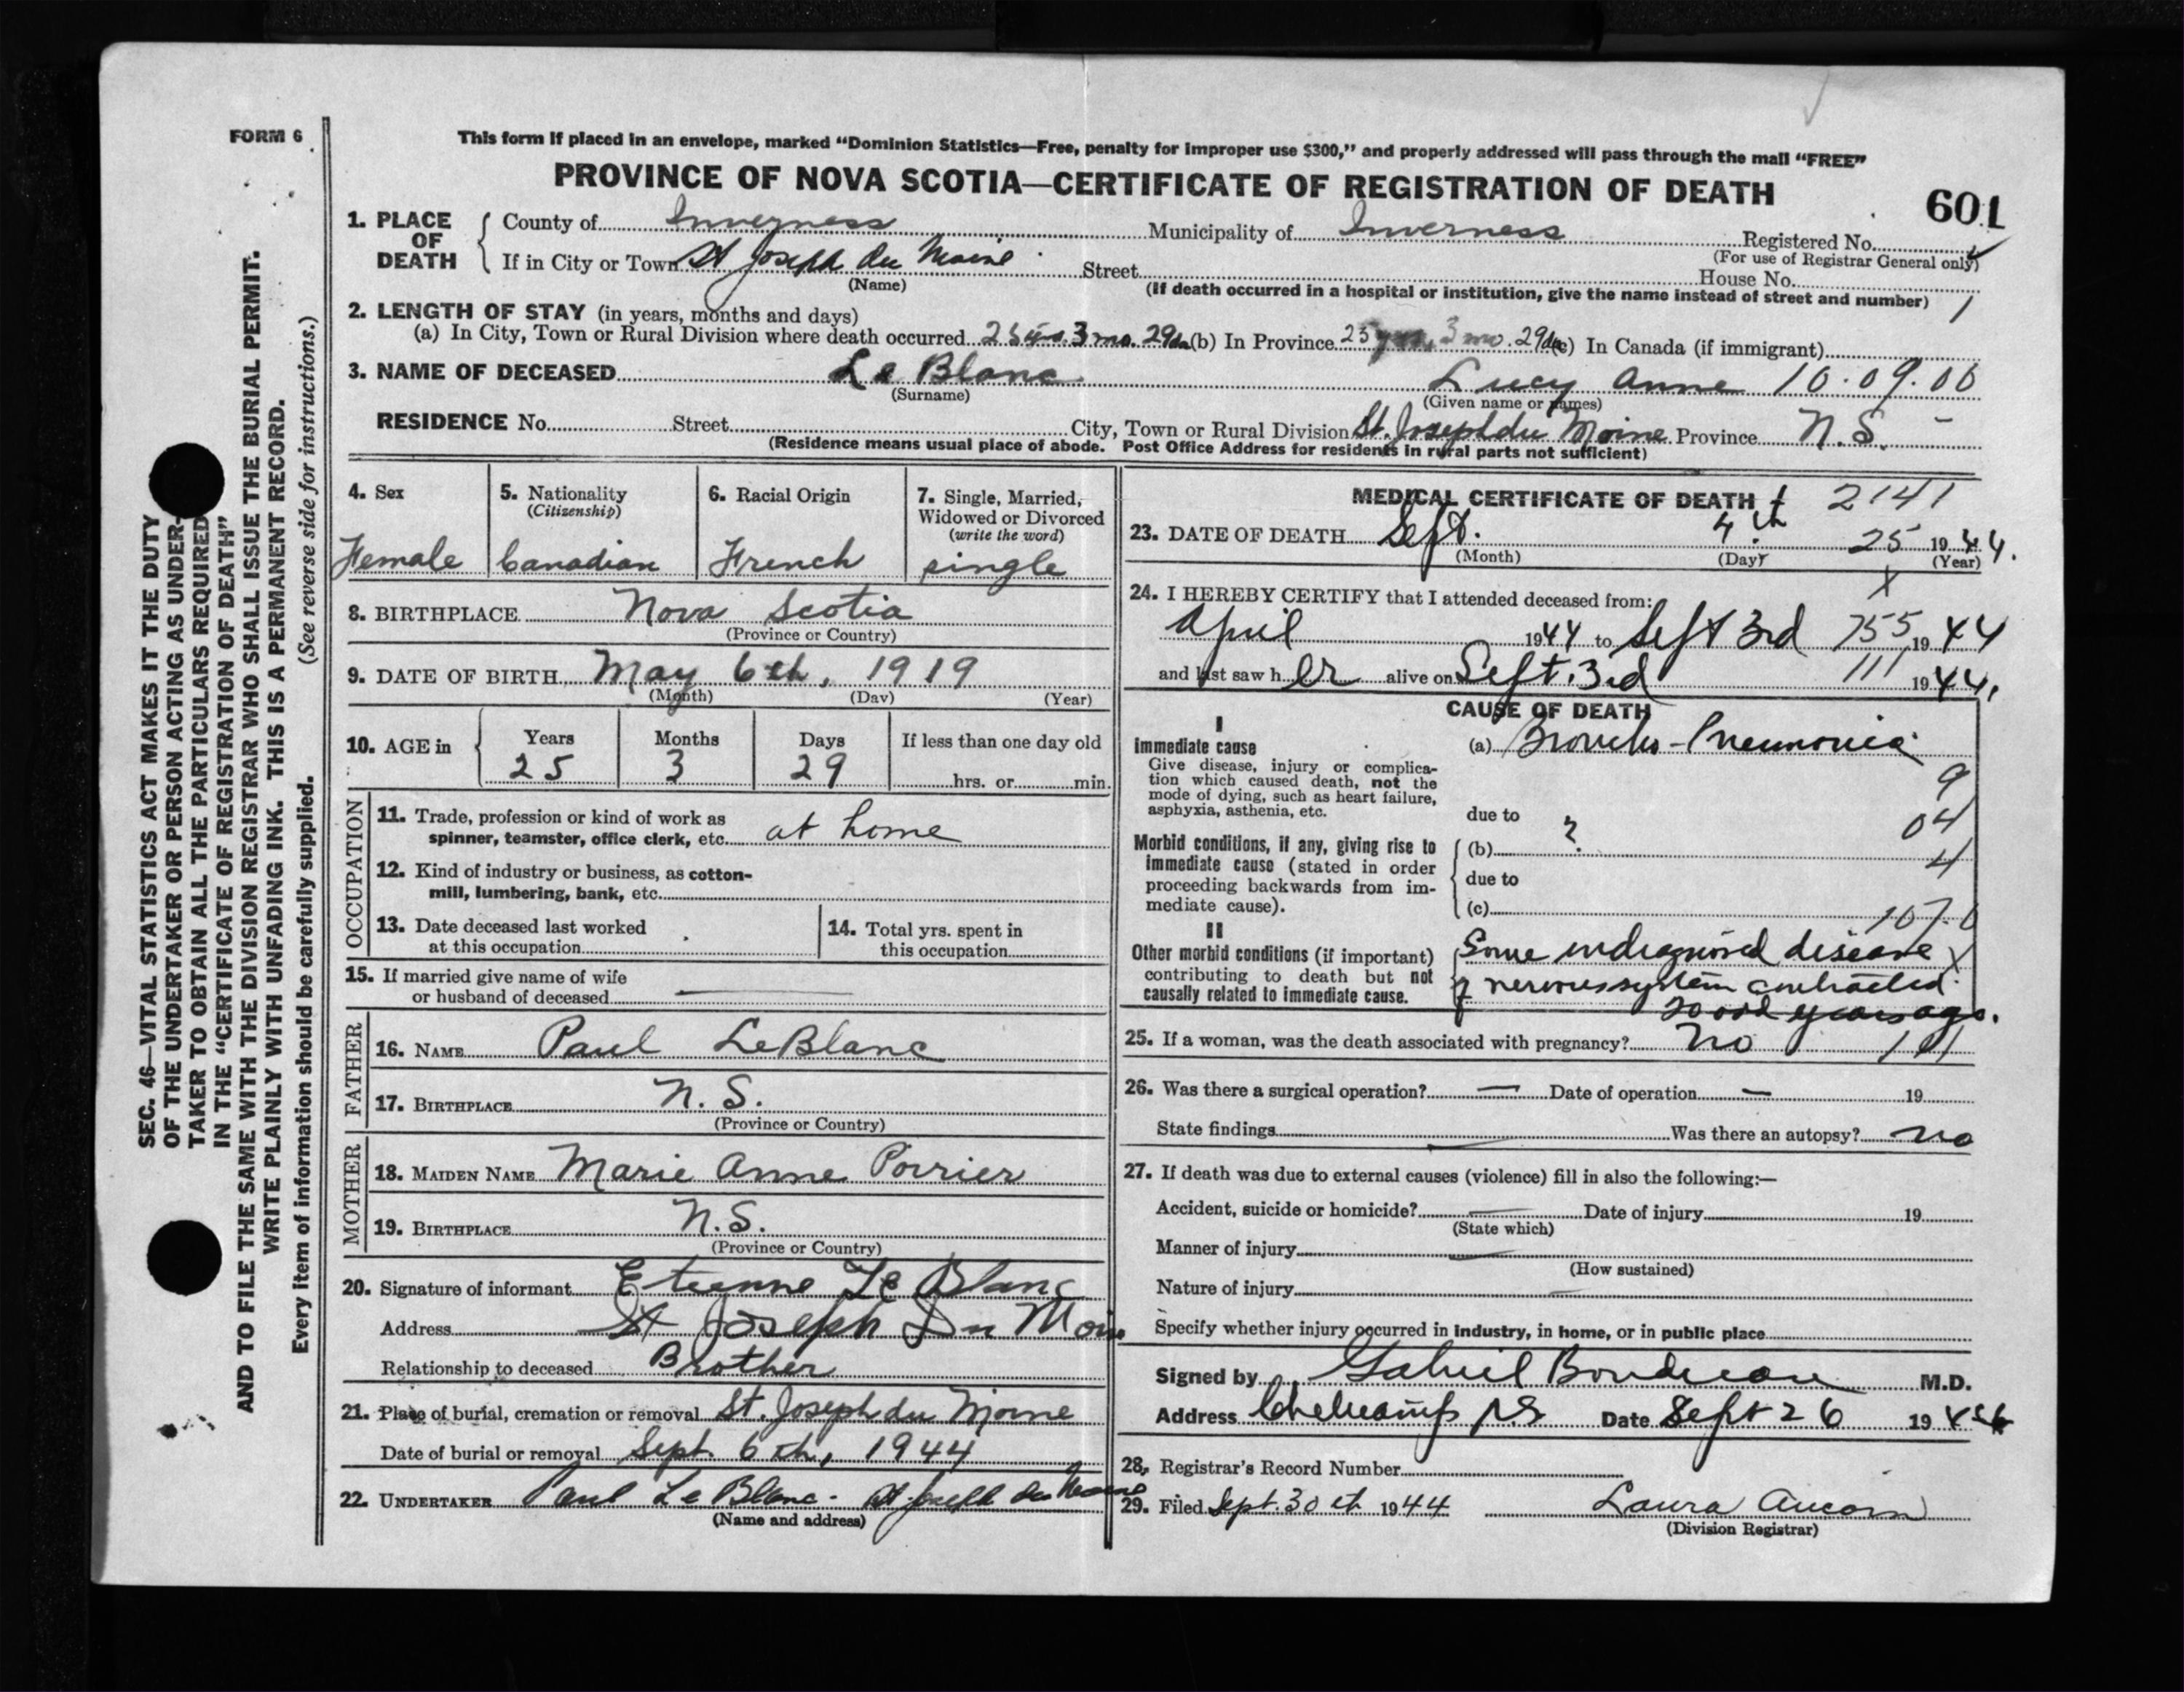 FORM 6
This form if placed in an envelope, marked "Dominion Statistics—Free, penalty for improper use $300," and properly addressed will pass through the mail "FREE"
PROVINCE OF NOVA SCOTIA—CERTIFICATE OF REGISTRATION OF DEATH
601
1. PLACE OF DEATH
County of Inverness Municipality of Inverness Registered No.
(For use of Registrar General only)
If in City or Town St Joseph du Moine Street House No.
(Name) (If death occurred in a hospital or institution, give the name instead of street and number) 1
2. LENGTH OF STAY (in years, months and days)
(a) In City, Town or Rural Division where death occurred 25 yrs. 3 mo. 29 da (b) In Province 25 yrs. 3 mo. 29 da (c) In Canada (if immigrant)
3. NAME OF DECEASED Le Blanc Lucy Anne 10.09.06
(Surname) (Given name or names)
RESIDENCE No. Street City, Town or Rural Division St. Joseph du Moine Province N.S. –
(Residence means usual place of abode. Post Office Address for residents in rural parts not sufficient)
4. Sex
Female
5. Nationality
(Citizenship)
Canadian
6. Racial Origin
French
7. Single, Married,
Widowed or Divorced
(write the word)
single
8. BIRTHPLACE Nova Scotia
(Province or Country)
9. DATE OF BIRTH May 6th, 1919
(Month) (Day) (Year)
10. AGE in
Years Months Days If less than one day old
25 3 29 hrs. or min.
OCCUPATION
11. Trade, profession or kind of work as
spinner, teamster, office clerk, etc. at home
12. Kind of industry or business, as cotton-
mill, lumbering, bank, etc.
13. Date deceased last worked
at this occupation
14. Total yrs. spent in
this occupation
15. If married give name of wife
or husband of deceased —
FATHER
16. NAME Paul LeBlanc
17. BIRTHPLACE N.S.
(Province or Country)
MOTHER
18. MAIDEN NAME Marie Anne Porrier
19. BIRTHPLACE N.S.
(Province or Country)
20. Signature of informant Etienne Le Blanc
Address St Joseph Du Moin
Relationship to deceased Brother
21. Place of burial, cremation or removal St. Joseph du Moine
Date of burial or removal Sept. 6th, 1944
22. UNDERTAKER Paul Le Blanc - St Joseph du Moine
(Name and address)
MEDICAL CERTIFICATE OF DEATH 2141
23. DATE OF DEATH Sept. 4th 25 1944.
(Month) (Day) (Year)
24. I HEREBY CERTIFY that I attended deceased from: X
April 1944 to Sept 3rd 755 1944
and last saw her alive on Sept. 3rd 111 1944,
CAUSE OF DEATH
I
Immediate cause
Give disease, injury or complica-
tion which caused death, not the
mode of dying, such as heart failure,
asphyxia, asthenia, etc.
(a) Broncho-Pneumonia
9
due to
04
Morbid conditions, if any, giving rise to
immediate cause (stated in order
proceeding backwards from im-
mediate cause).
(b) ?
4
due to
(c) 107.0
II
Other morbid conditions (if important)
contributing to death but not
causally related to immediate cause.
Some undiagnosed disease X
of nervous system contracted
20 odd years ago.
25. If a woman, was the death associated with pregnancy? No
26. Was there a surgical operation? — Date of operation — 19
State findings — Was there an autopsy? no
27. If death was due to external causes (violence) fill in also the following:—
Accident, suicide or homicide? — Date of injury 19
(State which)
Manner of injury —
(How sustained)
Nature of injury —
Specify whether injury occurred in industry, in home, or in public place
Signed by Gabriel Boudreau M.D.
Address Cheticamp N.S Date Sept 26 1944
28. Registrar's Record Number
29. Filed Sept. 30th 1944 Laura Aucoin
(Division Registrar)
SEC. 46—VITAL STATISTICS ACT MAKES IT THE DUTY
OF THE UNDERTAKER OR PERSON ACTING AS UNDER-
TAKER TO OBTAIN ALL THE PARTICULARS REQUIRED
IN THE "CERTIFICATE OF REGISTRATION OF DEATH"
AND TO FILE THE SAME WITH THE DIVISION REGISTRAR WHO SHALL ISSUE THE BURIAL PERMIT.
WRITE PLAINLY WITH UNFADING INK. THIS IS A PERMANENT RECORD.
Every item of information should be carefully supplied. (See reverse side for instructions.)